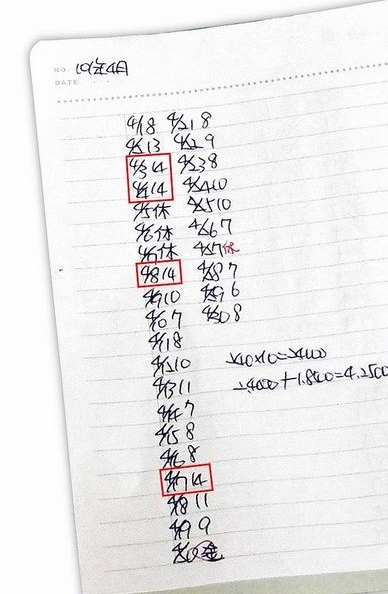 NO. 101年4月
DATE
4/1 8 4/21 8
4/2 13 4/22 9
4/3 14 4/23 8
4/4 14 4/24 10
4/5 休 4/25 10
4/6 休 4/26 7
4/7 休 4/27 休
4/8 14 4/28 7
4/9 10 4/29 6
4/10 7 4/30 8
4/11 8
4/12 10
4/13 11
4/14 7
4/15 8
4/16 8
4/17 14
4/18 11
4/19 9
4/20